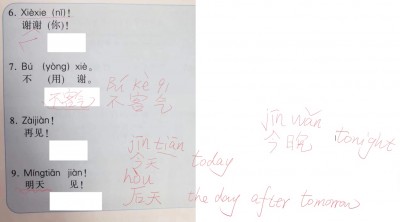 6. Xièxie (nǐ)!
谢谢(你)!
7. Bú (yòng) xiè.
不 (用) 谢。
Bú kè qì
不客气 不客气
8. Zàijiàn!
再见!
jīn wǎn
今晚 tonight
jīn tiān
今天 today
9. Míngtiān jiàn!
明天 见!
hòu
后天 the day after tomorrow